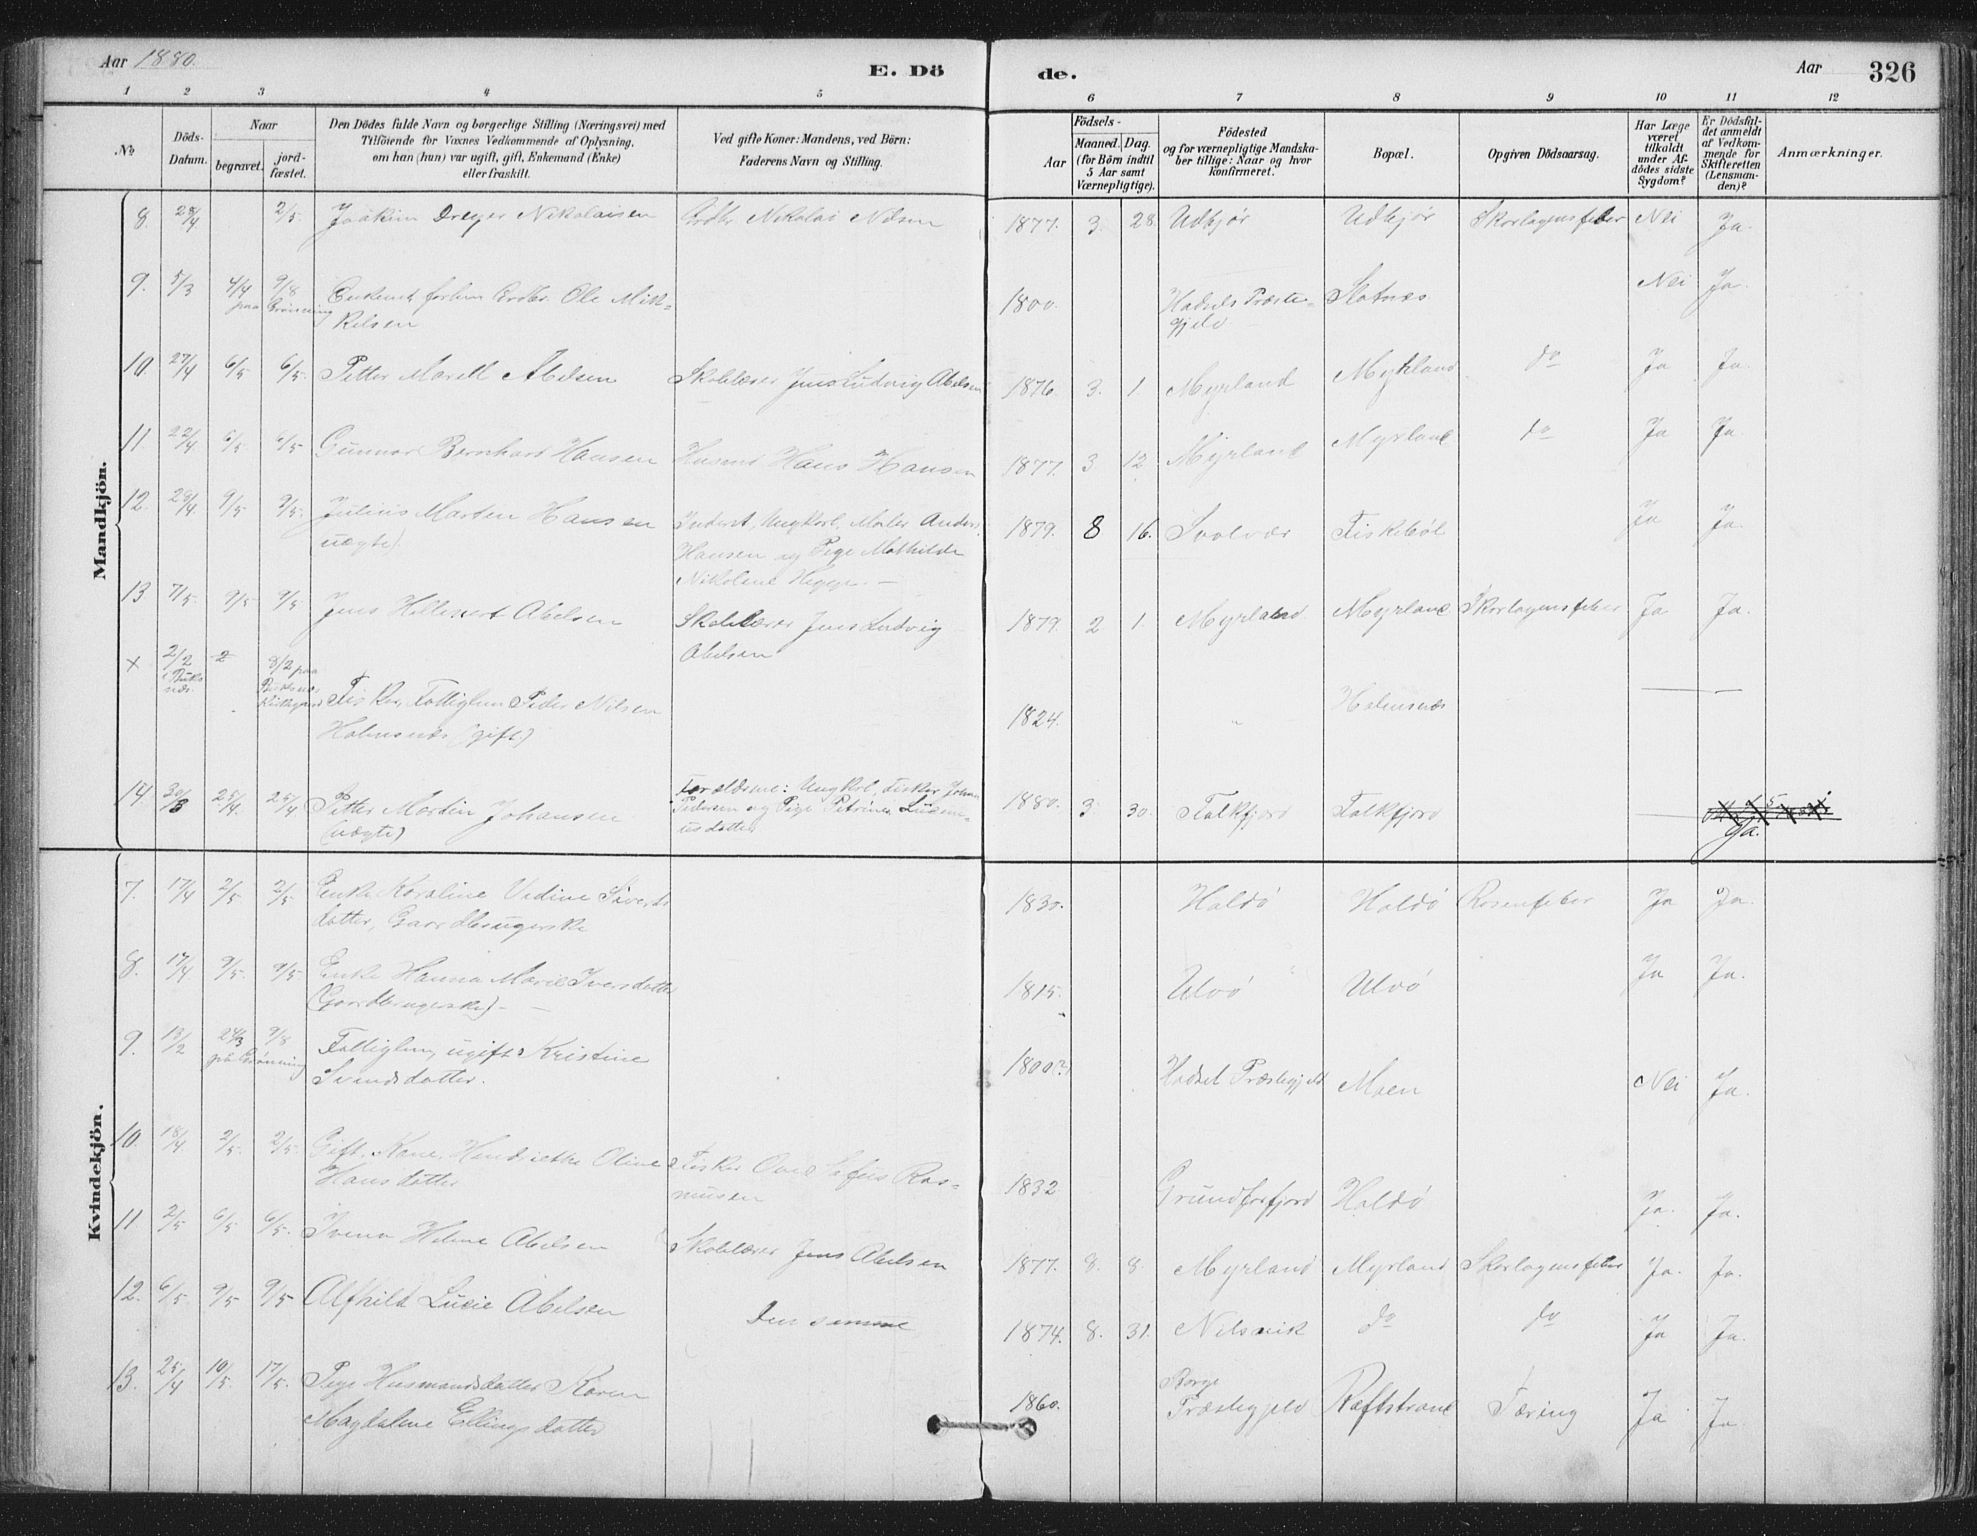 Aar 1880.
E. Dö
de.
Aar
326
1 2 3 4 5 6 7 8 9 10 11 12
No.
Döds-
Datum.
Naar
begravet.
jord-
fæstet.
Den Dödes fulde Navn og borgerlige Stilling (Næringsvei) med
Tilföiende for Voxnes Vedkommende af Oplysning,
om han (hun) var ugift, gift, Enkemand (Enke)
eller fraskilt.
Ved gifte Koner: Mandens, ved Börn:
Faderens Navn og Stilling.
Födsels-
Aar
Maaned. Dag.
(for Börn indtil
5 Aar samt
Værnepligtige).
Födested
og for værnepligtige Mandska-
ber tillige: Naar og hvor
konfirmeret.
Bopæl.
Opgiven Dödsaarsag.
Har Læge
været
tilkaldt
under Af-
dödes sidste
Sygdom?
Er Dödsfal-
det anmeldt
af Vedkom-
mende for
Skifteretten
(Lensman-
den)?
Anmærkninger.
Mandkjön.
8. 28/4 2/5 Joakim Dreyer Nikolaisen Nikolai Nilsen 1877. 3. 28. Udkjør Udkjør Skarlagensfeber Nei Ja.
9. 5/3 4/4 9/8 Enkemd forhen Ole Mik-
paa Grønning
kelsen
1800. Hadsels Præste-
gjeld
Slotnæs Nei Ja.
10. 27/4 6/5 6/5. Petter Marell Abelsen Skolelærer Jens Ludvig Abelsen 1876. 3. 1. Myrland Myrland do Ja Ja.
11. 22/4 6/5 6/5 Gunnar Bernhard Hansen Husmd Hans Hansen 1877. 3 12. Myrland Myrland do Ja Ja.
12. 28/4. 9/5 9/5. Julius Marten Hansen
(uægte)
Ungkarl, Maler Anders
Hansen og Pige Mathilde
Nikoline
1879. 8 16. Svolvær Fiskebøl Ja Ja.
13 7/5. 9/5 9/5. Jens Abelsen Skolelærer Jens Ludvig
Abelsen
1879. 2 1. Myrland Myrland Skarlagensfeber Ja Ja.
x 2/2 8/2 paa
Fisker, Fattiglem Peder Nilsen
Holmsnæs (gift)
1824. " Holmsnæs
14 30/3 25/4. 25/4 Petter Mortin Johansen
(uægte)
Forældrene: Ungkarl, Fisker Johan
Pedersen og Pige Petrine
1880. 3. 30. Falkfjord Falkfjord Ja.
Kvindekjön.
7. 17/4 2/5 2/5 Enke Karoline Vedine Siverts
datter, Gaardbrugerske
1830. Holdø Holdø Rosenfeber Ja Ja.
8. 17/4 9/5. 9/5 Enke Hanna Marie Iversdatter
(Gaardbrugerske)
1815. Ulvø Ulvø Ja Ja.
9. 13/2 24/3 9/8 Fattiglem, ugift Kristine
paa Grønning
Svendsdatter.
1800(?) Hadsel Præstegjeld Moen Nei Ja.
10. 18/4 2/5. 2/5. Gift Kone, Henriette Oline
Hansdatter
Fisker Ove Ras-
musen
1832 Grundforfjord Holdø Ja. Ja.
11 2/5 6/5 6/5. Helene Abelsen Skolelærer Jens Abelsen 1877. 8. 8. Myrland Myrland Skarlagensfeber Ja. Ja.
12. 6/5. 9/5 9/5 Alfhild Lucie Abelsen Den samme 1874. 8. 31. Nilsvik do do Ja Ja.
13. 25/4 10/5. 17/5. Pige Husmandsdatter Karen
Magdalene Ellingsdatter
1860. Borge
Præstegjeld
Raftstrand Tæring Ja Ja.